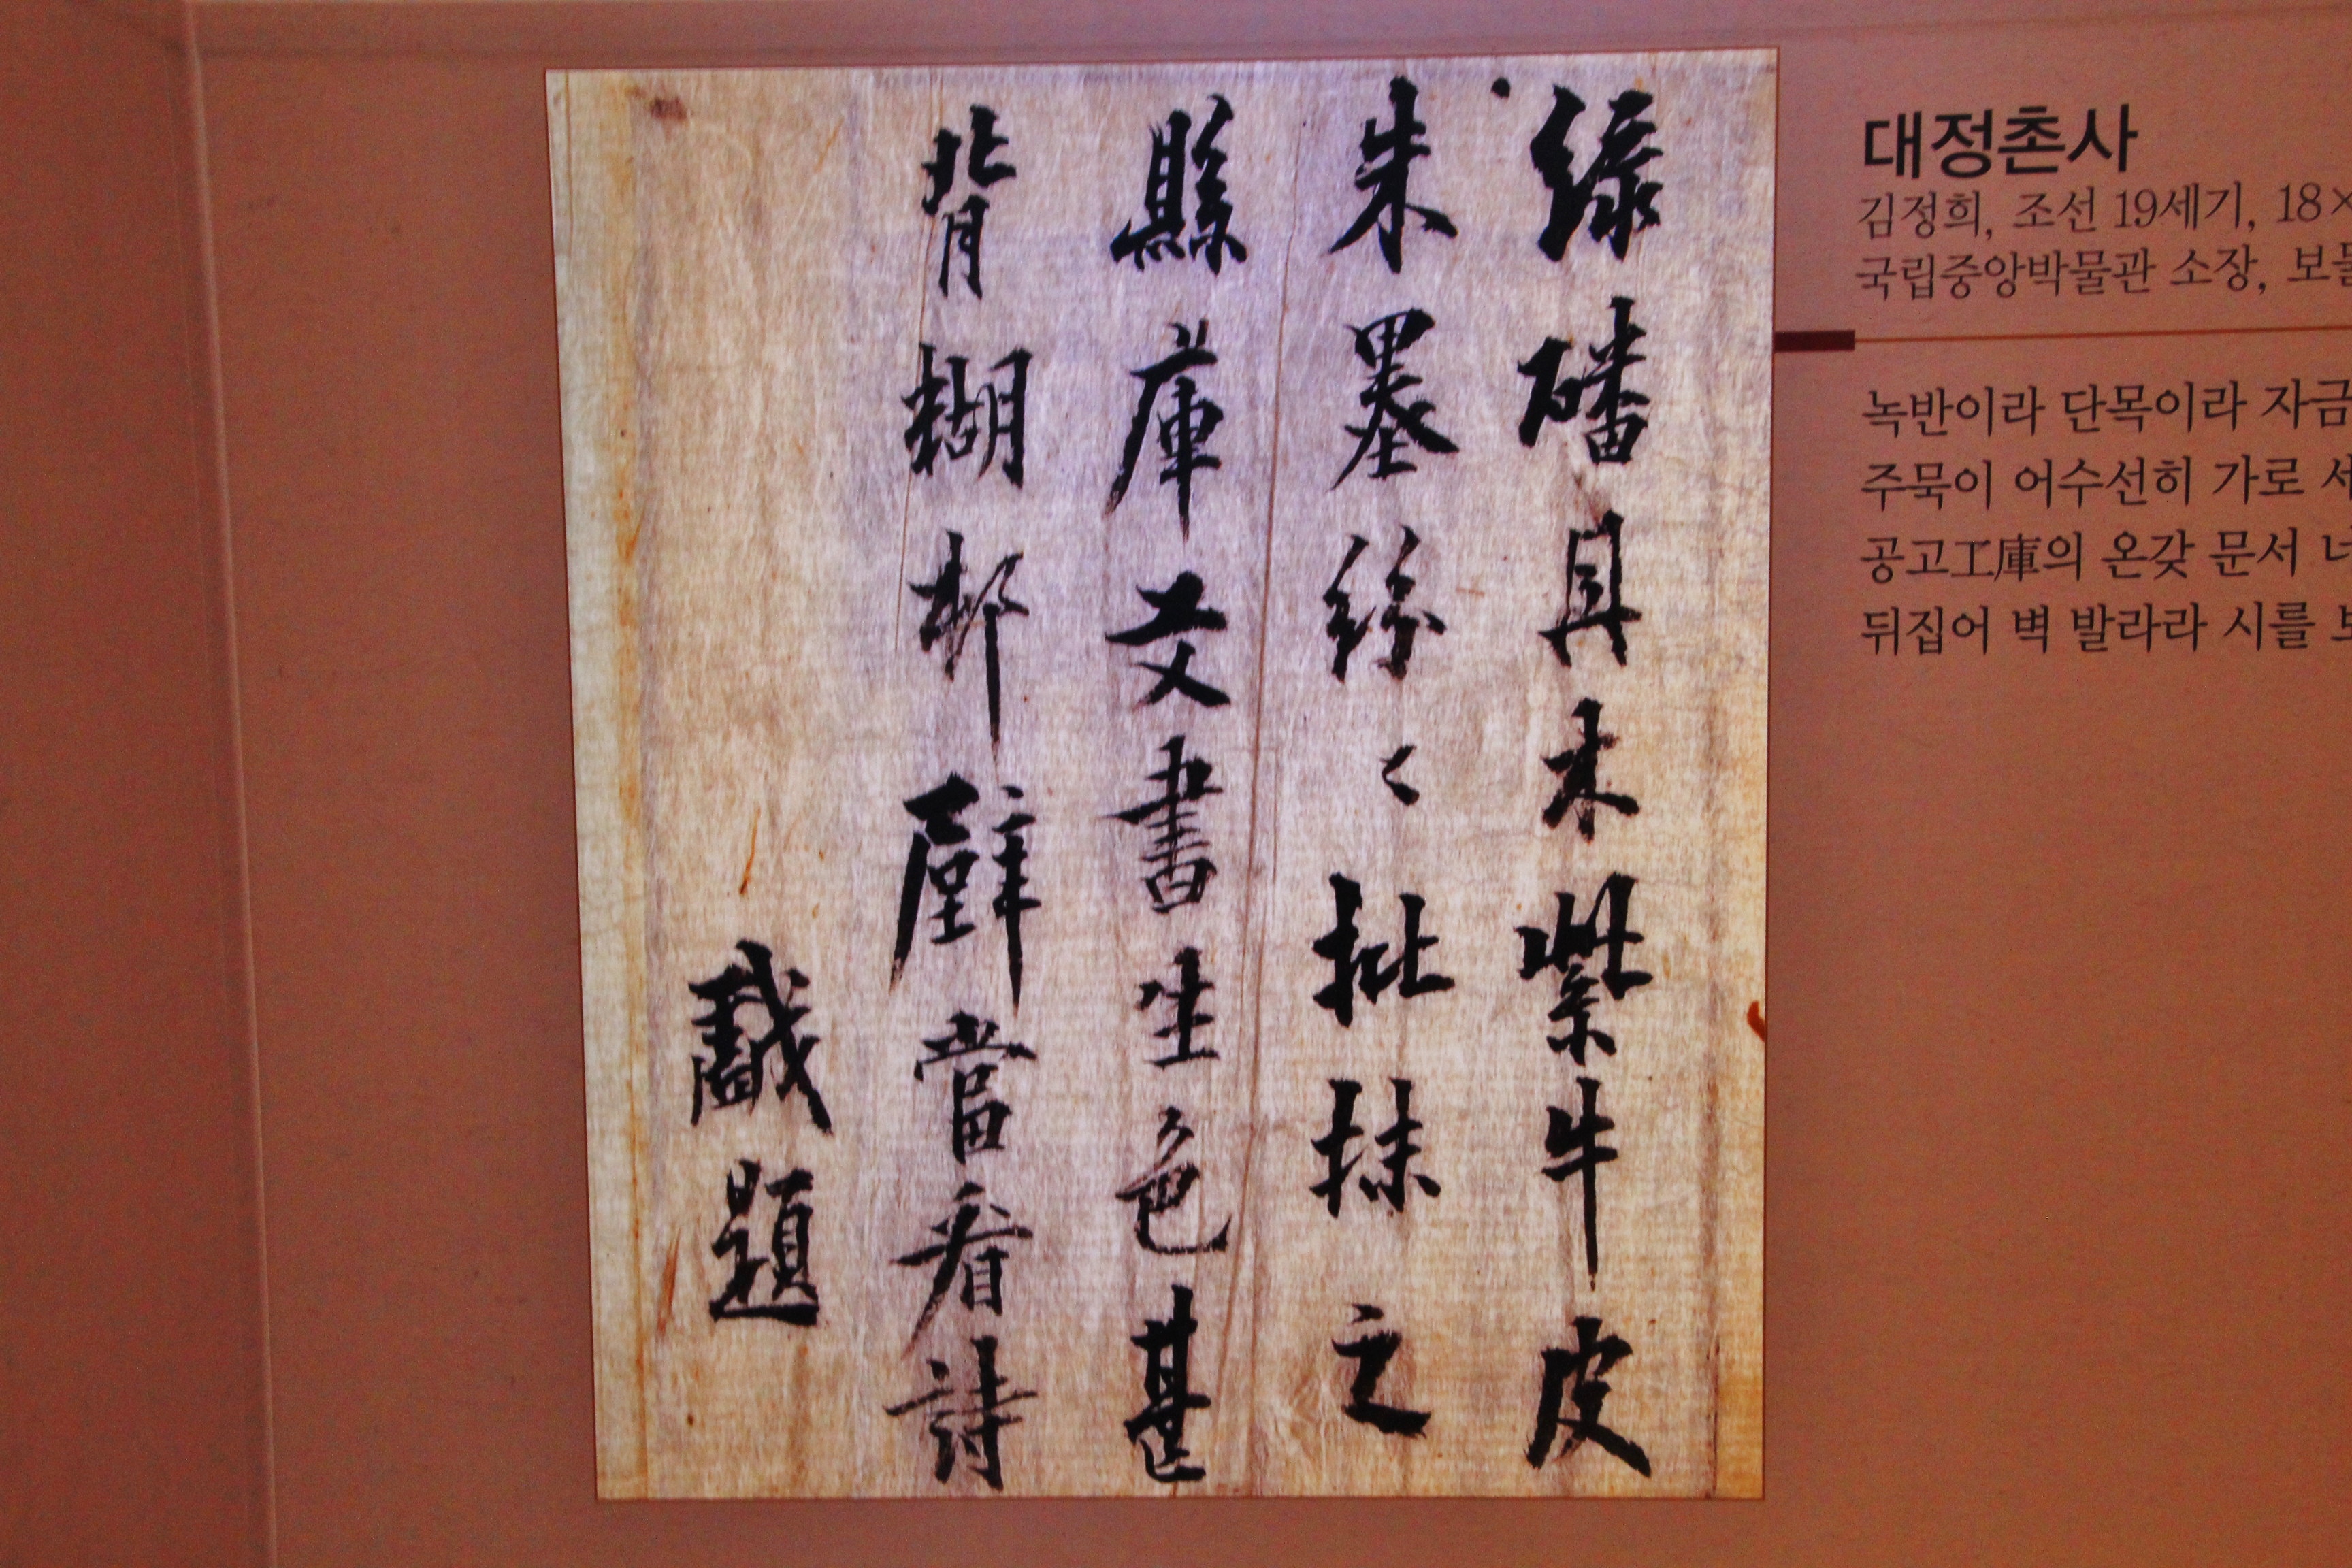 綠磻丹木紫牛皮
朱墨紛々批抹之
縣庫文書生色甚
背糊邨壁當看詩
戲題
대정촌사
김정희, 조선 19세기, 18×
국립중앙박물관 소장,
녹반이라 단목이라 자금
주묵이 어수선히 가로
공고工庫의 온갖 문서
뒤집어 벽 발라라 시를